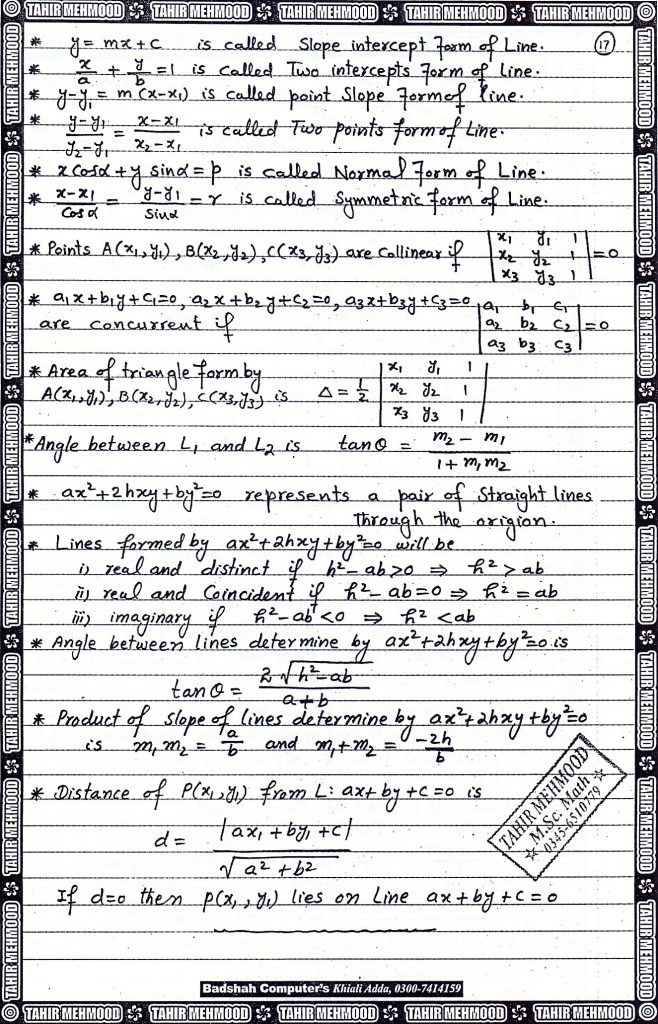 TAHIR MEHMOOD TAHIR MEHMOOD TAHIR MEHMOOD TAHIR MEHMOOD TAHIR MEHMOOD
17
* y = mx+c is called Slope intercept Form of Line.
* x/a + y/b = 1 is called Two intercepts Form of Line.
* y-y₁ = m(x-x₁) is called point Slope Form of line.
* y-y₁/y₂-y₁ = x-x₁/x₂-x₁ is called Two points Form of Line.
* x cosα + y sinα = p is called Normal Form of Line.
* x-x₁/Cosα = y-y₁/Sinα = r is called Symmetric Form of Line.
* Points A(x₁,y₁), B(x₂,y₂), C(x₃,y₃) are Collinear if |x₁ y₁ 1; x₂ y₂ 1; x₃ y₃ 1| = 0
* a₁x+b₁y+c₁=0, a₂x+b₂y+c₂=0, a₃x+b₃y+c₃=0
are concurrent if |a₁ b₁ c₁; a₂ b₂ c₂; a₃ b₃ c₃| = 0
* Area of triangle form by
A(x₁,y₁), B(x₂,y₂), C(x₃,y₃) is Δ = 1/2 |x₁ y₁ 1; x₂ y₂ 1; x₃ y₃ 1|
* Angle between L₁ and L₂ is tanθ = m₂ - m₁/1+m₁m₂
* ax²+2hxy+by²=0 represents a pair of Straight lines
Through the origion.
* Lines formed by ax²+2hxy+by²=0 will be
i) real and distinct if h²-ab>0 ⇒ h²>ab
ii) real and Coincident if h²-ab=0 ⇒ h²=ab
iii) imaginary if h²-ab<0 ⇒ h²<ab
* Angle between lines determine by ax²+2hxy+by²=0 is
tanθ = 2√h²-ab/a+b
* Product of slope of lines determine by ax²+2hxy+by²=0
is m₁m₂ = a/b and m₁+m₂ = -2h/b
* Distance of P(x₁,y₁) from L: ax+by+c=0 is
d = |ax₁+by₁+c|/√a²+b²
TAHIR MEHMOOD
M.Sc. Math
0345-6510779
If d=0 then P(x₁,y₁) lies on Line ax+by+c=0
Badshah Computer's Khiali Adda, 0300-7414159
TAHIR MEHMOOD TAHIR MEHMOOD TAHIR MEHMOOD TAHIR MEHMOOD TAHIR MEHMOOD